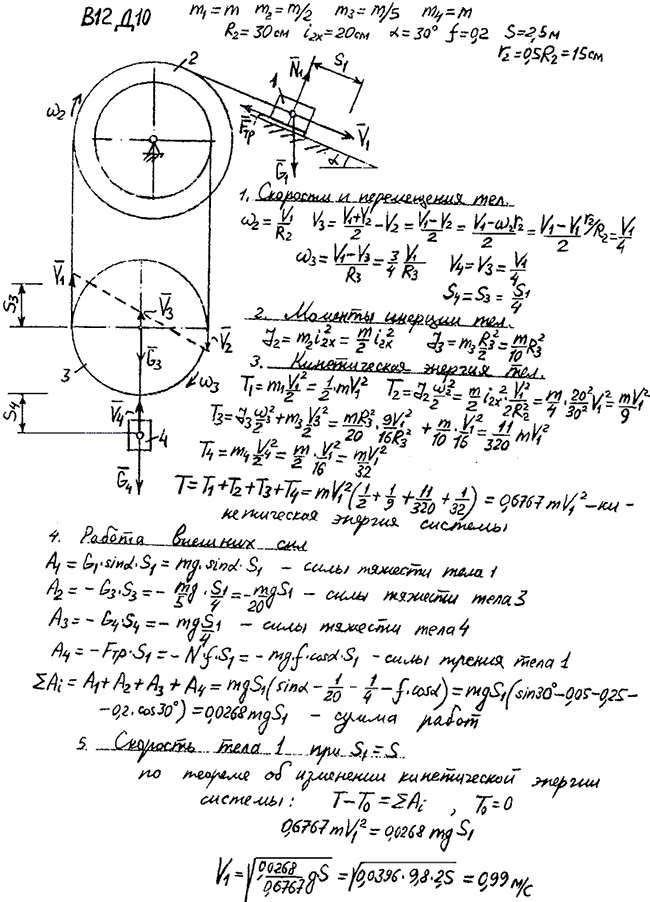 В12 Д10 m₁ = m m₂ = m/2 m₃ = m/5 m₄ = m
R₂ = 30 см i₂ₓ = 20 см α = 30° f = 0,2 S = 2,5 м
r₂ = 0,5R₂ = 15 см
2
N̄₁
S₁
1
ω₂
F̄тр
V̄₁
α
Ḡ₁
1. Скорости и перемещения тел.
ω₂ = V₁/R₂ V₃ = (V₁+V₂)/2 − V₂ = (V₁−V₂)/2 = (V₁−ω₂r₂)/2 = (V₁−V₁ r₂/R₂)/2 = V₁/4
ω₃ = (V₁−V₃)/R₃ = 3/4 V₁/R₃ V₄ = V₃ = V₁/4
S₄ = S₃ = S₁/4
V̄₁
S₃
V̄₃
V̄₂
Ḡ₃
3
ω₃
S₄
V̄₄
4
Ḡ₄
2. Моменты инерции тел.
J₂ = m₂i₂ₓ² = m/2 i₂ₓ² J₃ = m₃ R₃²/2 = m/10 R₃²
3. Кинетическая энергия тел.
T₁ = m₁ V₁²/2 = 1/2 · mV₁² T₂ = J₂ ω₂²/2 = m/2 i₂ₓ² · V₁²/2R₂² = m/4 · 20²/30² V₁² = mV₁²/9
T₃ = J₃ ω₃²/2 + m₃ V₃²/2 = mR₃²/20 · 9V₁²/16R₃² + m/10 · V₁²/16 = 11/320 mV₁²
T₄ = m₄ V₄²/2 = m/2 · V₁²/16 = mV₁²/32
T = T₁ + T₂ + T₃ + T₄ = mV₁² (1/2 + 1/9 + 11/320 + 1/32) = 0,6767 mV₁² – ки-
нетическая энергия системы
4. Работа внешних сил
A₁ = G₁·sinα·S₁ = mg·sinα·S₁ – силы тяжести тела 1
A₂ = −G₃·S₃ = − mg/5 · S₁/4 = − mgS₁/20 – силы тяжести тела 3
A₃ = −G₄·S₄ = − mg S₁/4 – силы тяжести тела 4
A₄ = −Fтр·S₁ = −N·f·S₁ = −mg·f·cosα·S₁ – силы трения тела 1
ΣAᵢ = A₁ + A₂ + A₃ + A₄ = mgS₁(sinα − 1/20 − 1/4 − f·cosα) = mgS₁(sin30° − 0,05 − 0,25 −
− 0,2·cos30°) = 0,0268 mgS₁ – сумма работ
5. Скорость тела 1 при S₁ = S
по теореме об изменении кинетической энергии
системы: T − T₀ = ΣAᵢ , T₀ = 0
0,6767 mV₁² = 0,0268 mgS₁
V₁ = √(0,0268/0,6767 gS) = √(0,0396·9,8·2,5) = 0,99 м/с